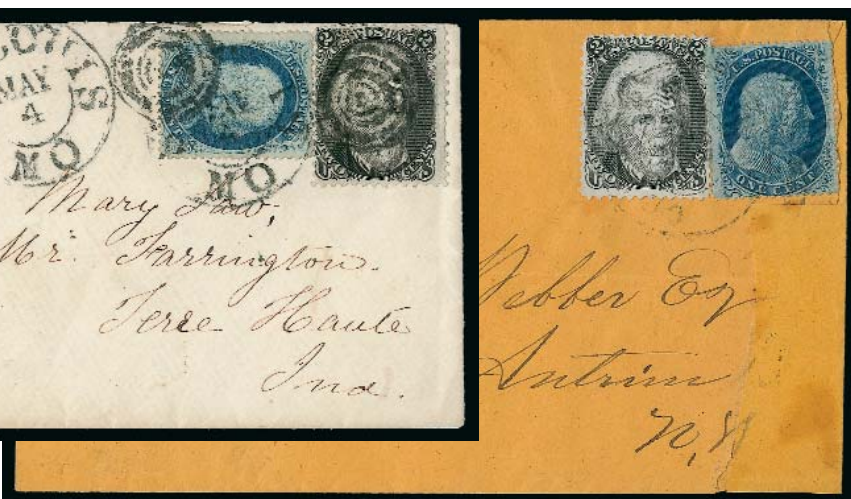 LOUIS
MAY
4
MO
MO
Mr. Farrington.
Terre Haute
Ind.
U.S. POSTAGE
ONE CENT
Webber Esq
Antrim
N.H